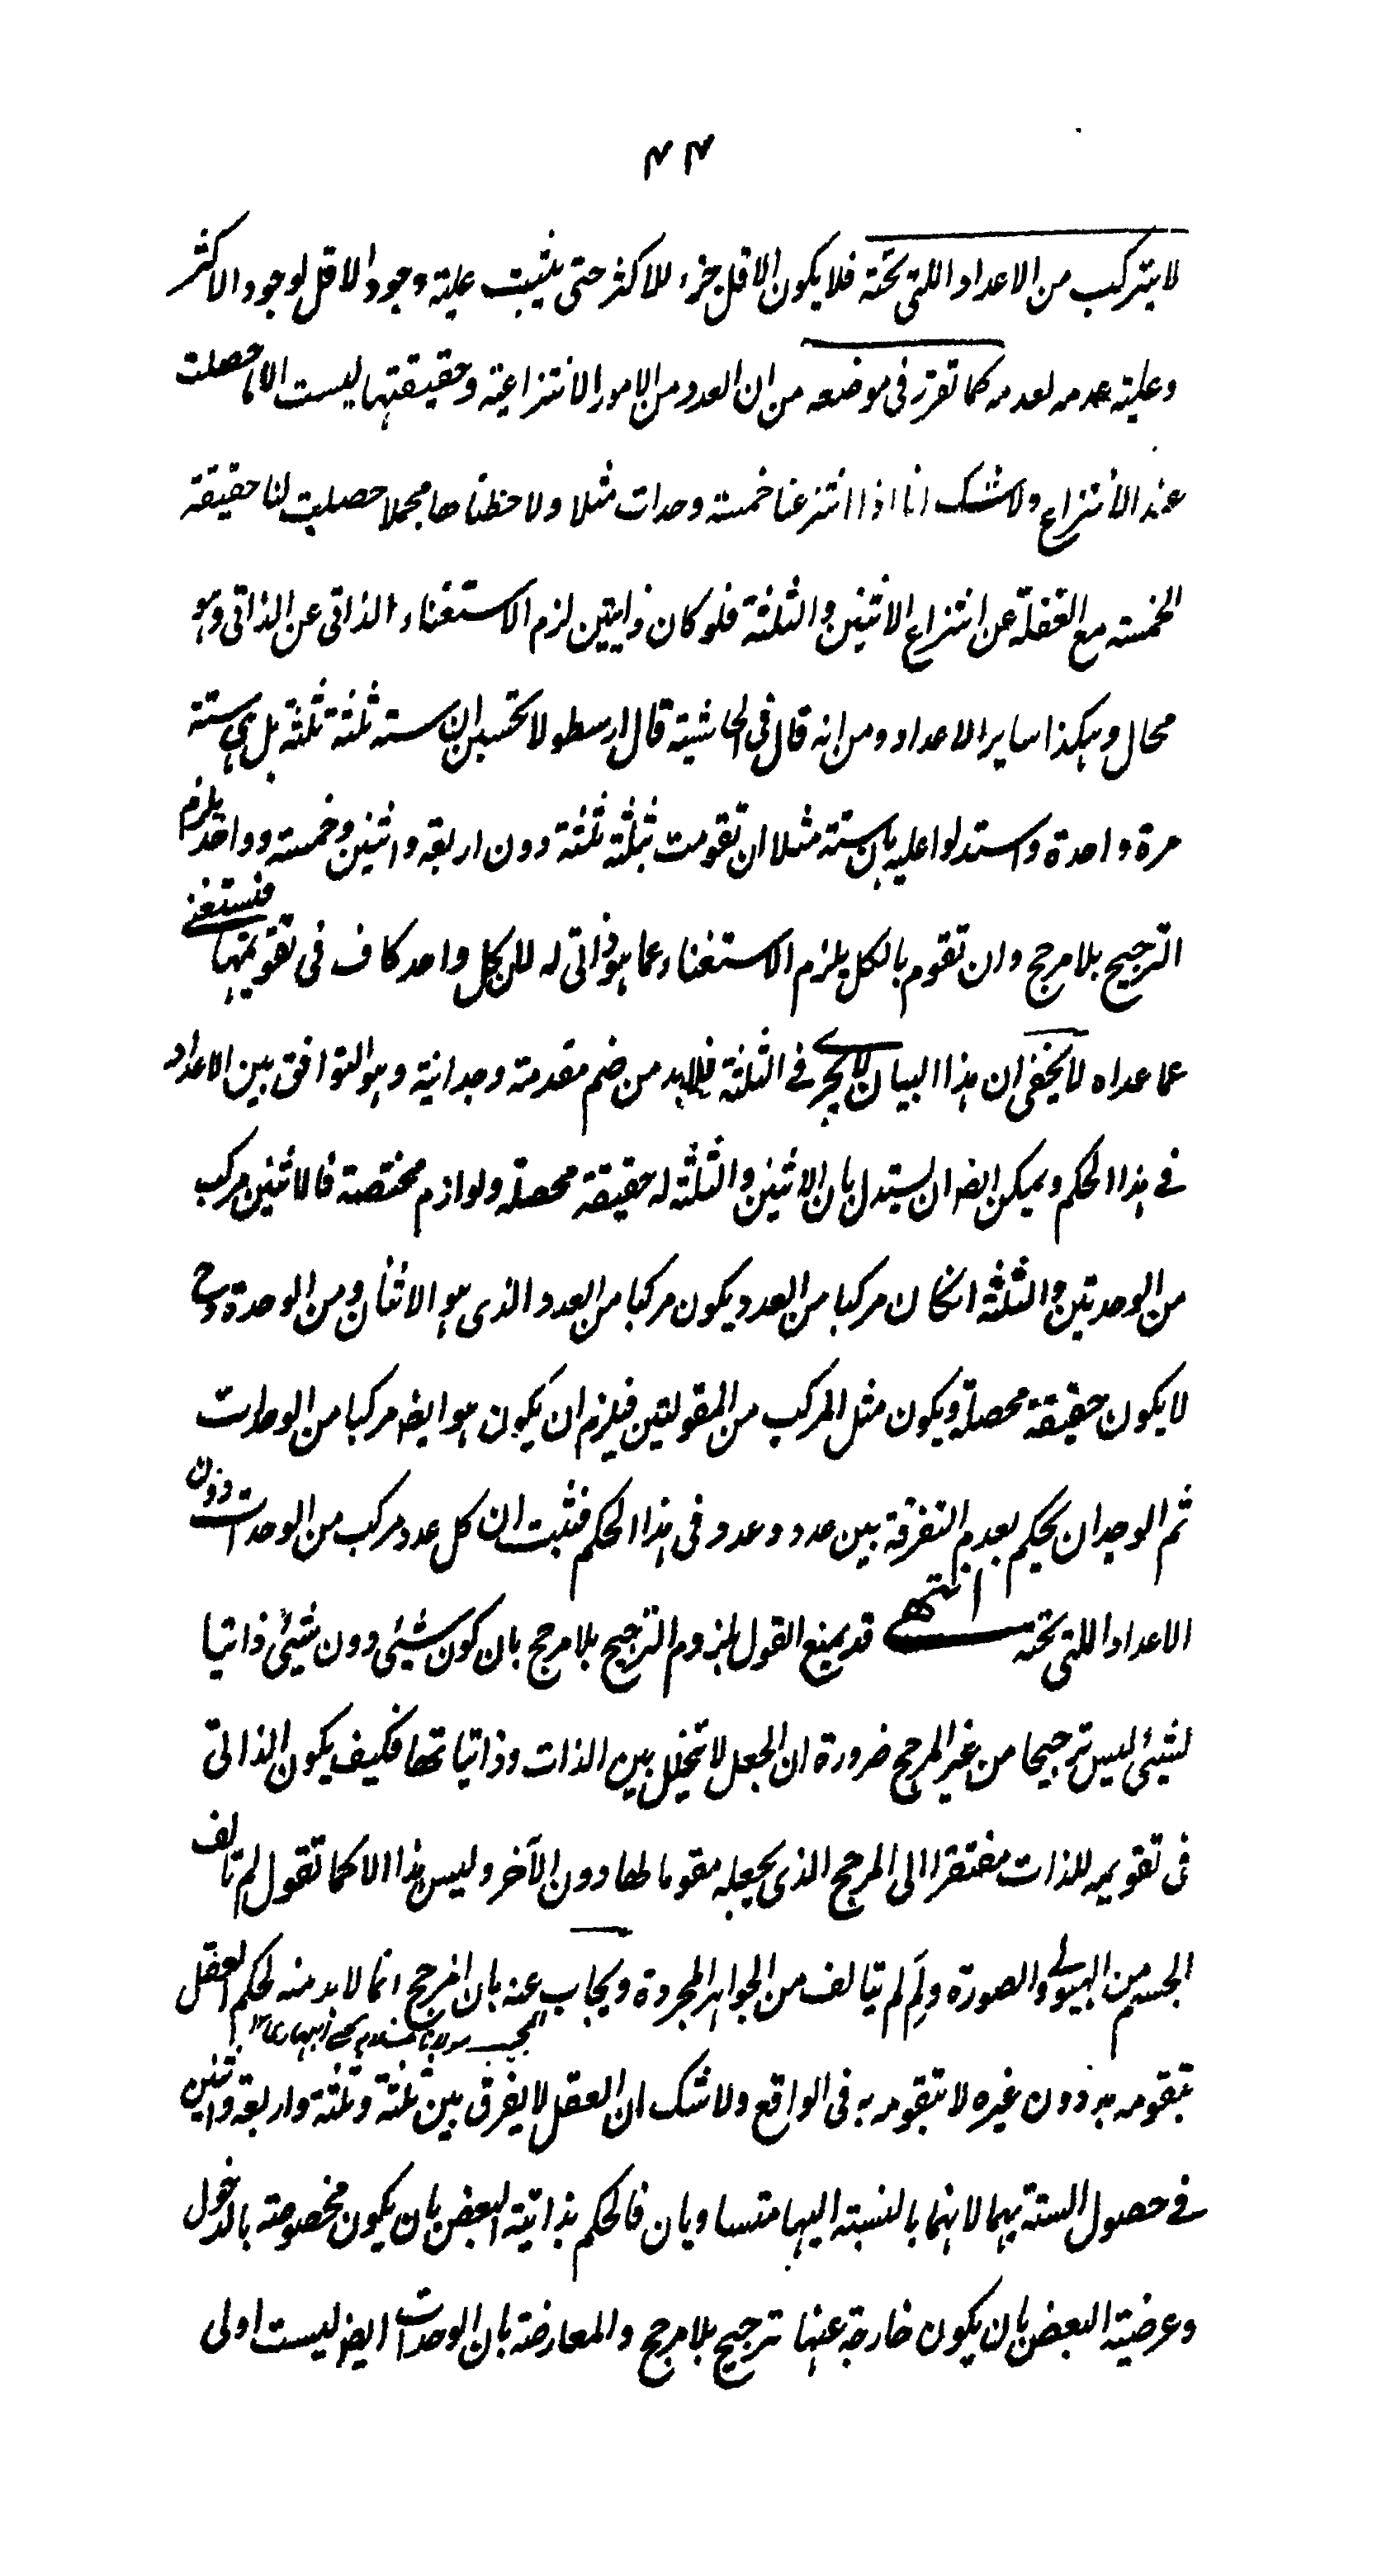 ٤٤
لا يتركب من الاعداد اللتى تحته فلا يكون الاقل جزء للاكثر حتى يثبت علية وجود الاقل لوجود الاكثر
وعلية عدمه لعدمه كما تقرر فى موضعه من ان العدد من الامور الانتزاعية وحقيقتها ليست الا ما حصلت
عند الانتزاع ولا شك انا اذا انتزعنا خمسة وحدات مثلا ولاحظناها مجملا حصلت لنا حقيقة
الخمسة مع الغفلة عن انتزاع الاثنين والثلثة فلو كان ذاتيين لزم الاستغناء الذاتى عن الذاتى وهو
محال وهكذا ساير الاعداد ومن انه قال فى الحاشية قال ارسطو لا تحسبن ان ستة ثلثة ثلثة بل هى ستة
مرة واحدة واستدلوا عليه بان ستة مثلا ان تقومت بثلثة ثلثة دون اربعة واثنين وخمسة وواحد يلزم
الترجيح بلا مرجح وان تقوم بالكل يلزم الاستغناء عما هو ذاتى له لان كل واحد كاف فى تقويمها فتستغنى
عما عداه لا يخفى ان هذا البيان لا يجرى فى الثلثة فلابد من ضم مقدمة وجدانية وهو التوافق بين الاعداد
فى هذا الحكم ويمكن ايضا ان يستدل بان الاثنين والثلثة له حقيقة محصلة ولوازم مختصة فالاثنين مركب
من الوحدتين والثلثة انكان مركبا من العدد يكون مركبا من العدد الذى هو الاثنان ومن الوحدة وح
لا يكون حقيقة محصلة ويكون مثل المركب من المقولتين فيلزم ان يكون هو ايضا مركبا من الوحدات
ثم الوجدان يحكم بعدم التفرقة بين عدد وعدد فى هذا الحكم فثبت ان كل عدد مركب من الوحدات دون
الاعداد اللتى تحته انتهى قد يمنع القول بلزوم الترجيح بلا مرجح بان كون شيئ دون شيئ ذاتيا
لشيئ ليس ترجيحا من غير المرجح ضرورة ان الجعل لا تخلل بين الذات وذاتياتها فكيف يكون الذاتى
فى تقويمه للذات مفتقرا الى المرجح الذى يجعله مقوما لها دون الآخر وليس هذا الا كما تقول لم تالف
الجسم من الهيولى والصورة ولم لم يتالف من الجواهر المجردة ويجاب عنه بان المرجح انما لابد منه لحكم العقل
المجيب مولانا
بتقومه به دون غيره لا بتقومه به فى الواقع ولا شك ان العقل لا يفرق بين ثلثة وثلثة واربعة واثنين
فى حصول الستة بهما لانهما بالنسبة اليها متساويان فالحكم بذاتية البعض بان يكون مخصوصة بالدخول
وعرضية البعض بان يكون خارجة عنها ترجيح بلا مرجح والمعارضة بان الوحدات ايضا ليست اولى